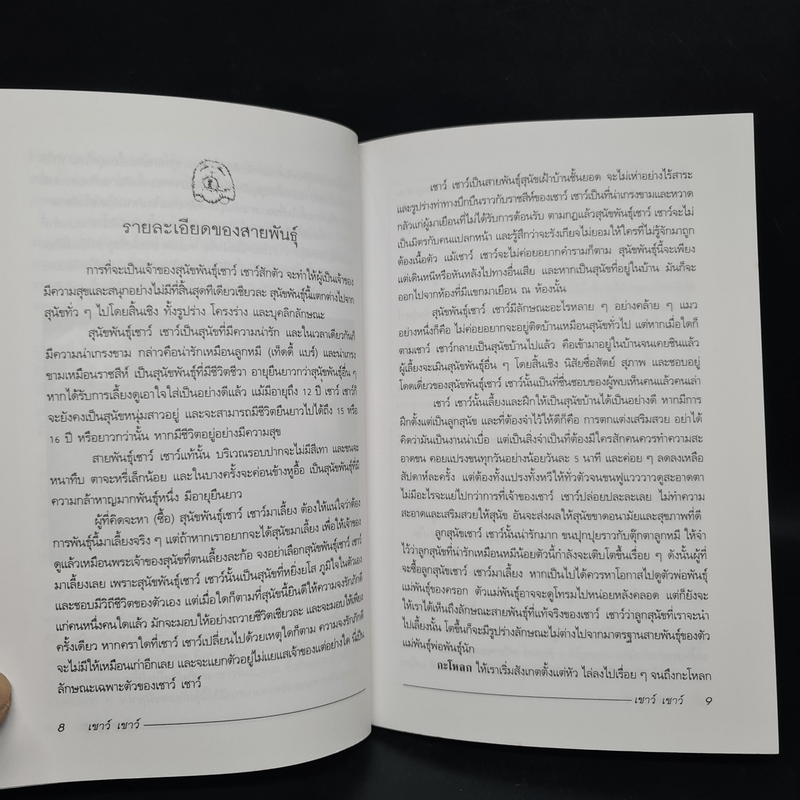 รายละเอียดของสายพันธุ์
การที่จะเป็นเจ้าของสุนัขพันธุ์เชาว์ เชาว์สักตัว จะทำให้ผู้เป็นเจ้าของ
มีความสุขและสนุกอย่างไม่มีที่สิ้นสุดทีเดียวเชียวละ สุนัขพันธุ์นี้แตกต่างไปจาก
สุนัขทั่ว ๆ ไปโดยสิ้นเชิง ทั้งรูปร่าง โครงร่าง และบุคลิกลักษณะ
สุนัขพันธุ์เชาว์ เชาว์เป็นสุนัขที่มีความน่ารัก และในเวลาเดียวกันก็
มีความน่าเกรงขาม กล่าวคือน่ารักเหมือนลูกหมี (เท็ดดี้ แบร์) และน่าเกรง
ขามเหมือนราชสีห์ เป็นสุนัขพันธุ์ที่มีชีวิตชีวา อายุยืนยาวกว่าสุนัขพันธุ์อื่น ๆ
หากได้รับการเลี้ยงดูเอาใจใส่เป็นอย่างดีแล้ว แม้มีอายุถึง 12 ปี เชาว์ เชาว์ก็
จะยังคงเป็นสุนัขหนุ่มสาวอยู่ และจะสามารถมีชีวิตยืนยาวไปได้ถึง 15 หรือ
16 ปี หรือยาวกว่านั้น หากมีชีวิตอยู่อย่างมีความสุข
สายพันธุ์เชาว์ เชาว์แท้นั้น บริเวณรอบปากจะไม่มีสีเทา และขนจะ
หนาทึบ ตาจะหรี่เล็กน้อย และในบางครั้งจะค่อนข้างหูอื้อ เป็นสุนัขพันธุ์ที่มี
ความกล้าหาญมากพันธุ์หนึ่ง มีอายุยืนยาว
ผู้ที่คิดจะหา (ซื้อ) สุนัขพันธุ์เชาว์ เชาว์มาเลี้ยง ต้องให้แน่ใจว่าต้อง
การพันธุ์นี้มาเลี้ยงจริง ๆ แต่ถ้าหากเราอยากจะได้สุนัขมาเลี้ยง เพื่อให้เจ้าของ
ดูแลเหมือนพระเจ้าของสุนัขที่ตนเลี้ยงละก้อ จงอย่าเลือกสุนัขพันธุ์เชาว์ เชาว์
มาเลี้ยงเลย เพราะสุนัขพันธุ์เชาว์ เชาว์นั้นเป็นสุนัขที่หยิ่งยโส ภูมิใจในตัวเอง
และชอบมีวิถีชีวิตของตัวเอง แต่เมื่อใดก็ตามที่สุนัขนี้ยินดีให้ความจงรักภักดี
แก่คนหนึ่งคนใดแล้ว มักจะมอบให้อย่างถวายชีวิตเชียวละ และจะมอบให้เพียง
ครั้งเดียว หากคราใดที่เชาว์ เชาว์เปลี่ยนไปด้วยเหตุใดก็ตาม ความจงรักภักดี
จะไม่มีให้เหมือนเก่าอีกเลย และจะแยกตัวอยู่ไม่แยแสเจ้าของแต่อย่างใด นี่เป็น
ลักษณะเฉพาะตัวของเชาว์ เชาว์
8 เชาว์ เชาว์
เชาว์ เชาว์เป็นสายพันธุ์สุนัขเฝ้าบ้านชั้นยอด จะไม่เห่าอย่างไร้สาระ
และรูปร่างท่าทางบึกบึนราวกับราชสีห์ของเชาว์ เชาว์เป็นที่น่าเกรงขามและหวาด
กลัวแก่ผู้มาเยือนที่ไม่ได้รับการต้อนรับ ตามกฎแล้วสุนัขพันธุ์เชาว์ เชาว์จะไม่
เป็นมิตรกับคนแปลกหน้า และรู้สึกว่าจะรังเกียจไม่ยอมให้ใครที่ไม่รู้จักมาถูก
ต้องเนื้อตัว แม้เชาว์ เชาว์จะไม่ค่อยอยากคำรามก็ตาม สุนัขพันธุ์นี้จะเพียง
แต่เดินหนีหรือหันหลังไปทางอื่นเสีย และหากเป็นสุนัขที่อยู่ในบ้าน มันก็จะ
ออกไปจากห้องที่มีแขกมาเยือน ณ ห้องนั้น
สุนัขพันธุ์เชาว์ เชาว์มีลักษณะอะไรหลาย ๆ อย่างคล้าย ๆ แมว
อย่างหนึ่งก็คือ ไม่ค่อยอยากจะอยู่ติดบ้านเหมือนสุนัขทั่วไป แต่หากเมื่อใดก็
ตามเชาว์ เชาว์กลายเป็นสุนัขบ้านไปแล้ว คือเข้ามาอยู่ในบ้านจนเคยชินแล้ว
ผู้เลี้ยงจะเมินสุนัขพันธุ์อื่น ๆ โดยสิ้นเชิง นิสัยซื่อสัตย์ สุภาพ และชอบอยู่
โดดเดี่ยวของสุนัขพันธุ์เชาว์ เชาว์นั้นเป็นที่ชื่นชอบของผู้พบเห็นคนแล้วคนเล่า
เชาว์ เชาว์นั้นเลี้ยงและฝึกให้เป็นสุนัขบ้านได้เป็นอย่างดี หากมีการ
ฝึกตั้งแต่เป็นลูกสุนัข และที่ต้องจำไว้ให้ดีก็คือ การตกแต่งเสริมสวย อย่าได้
คิดว่ามันเป็นงานน่าเบื่อ แต่เป็นสิ่งจำเป็นที่ต้องมีใครสักคนควรทำความสะ
อาดขน คอยแปรงขนทุกวันอย่างน้อยวันละ 5 นาที และค่อย ๆ ลดลงเหลือ
สัปดาห์ละครั้ง แต่ต้องทั้งแปรงทั้งหวีให้ทั่วตัวจนขนฟูแวววาวดูสะอาดตา
ไม่มีอะไรจะแย่ไปกว่าการที่เจ้าของเชาว์ เชาว์ปล่อยปละละเลย ไม่ทำความ
สะอาดและเสริมสวยให้สุนัข อันจะส่งผลให้สุนัขขาดอนามัยและสุขภาพที่ดี
ลูกสุนัขเชาว์ เชาว์นั้นน่ารักมาก ขนปุกปุยราวกับตุ๊กตาลูกหมี ให้จำ
ไว้ว่าลูกสุนัขที่น่ารักเหมือนหมีน้อยตัวนี้กำลังจะเติบโตขึ้นเรื่อย ๆ ดังนั้นผู้ที่
จะซื้อลูกสุนัขเชาว์ เชาว์มาเลี้ยง หากเป็นไปได้ควรหาโอกาสไปดูตัวพ่อพันธุ์
แม่พันธุ์ของครอก ตัวแม่พันธุ์อาจจะดูโทรมไปหน่อยหลังคลอด แต่ก็ยังจะ
ให้เราได้เห็นถึงลักษณะสายพันธุ์ที่แท้จริงของเชาว์ เชาว์ว่าลูกสุนัขที่เราจะนำ
ไปเลี้ยงนั้น โตขึ้นก็จะมีรูปร่างลักษณะไม่ต่างไปจากมาตรฐานสายพันธุ์ของตัว
แม่พันธุ์พ่อพันธุ์นัก
กะโหลก ให้เราเริ่มสังเกตตั้งแต่หัว ไล่ลงไปเรื่อย ๆ จนถึงกะโหลก
เชาว์ เชาว์ 9